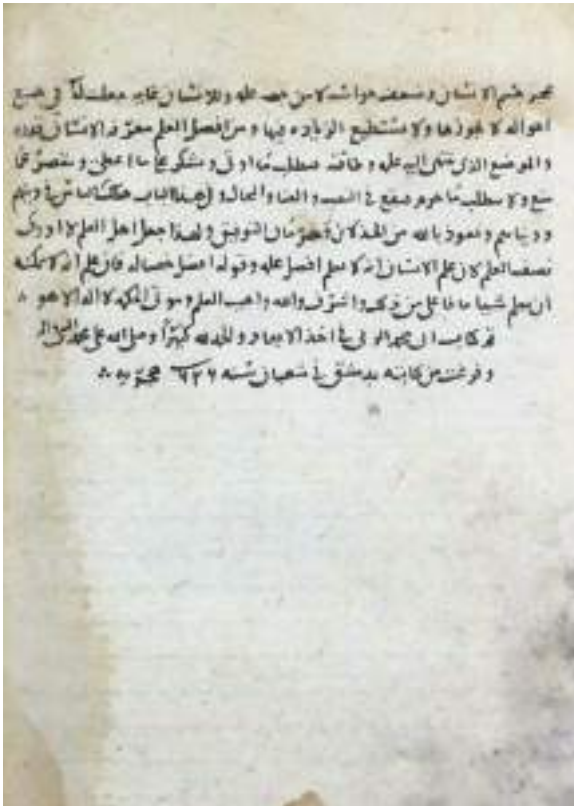 فهم الانسان وضعف حواسه لا من جهه عله وللانسان غايه فى جميع
احواله لا يجوزها ولا يستطيع الزياده فيها ومن افضل العلم معرفه الانسان قدره
والموضع الذى ينتهى اليه علمه وطاقته فيطلب ما اوتى ويشكر على ما اعطى ويقصر عما
منع ولا يطلب ما حرم فيقع فى التعب والعنا والمحال وفى هذا الباب هلك الناس فى دينهم
ودنياهم ونعوذ بالله من الخذلان وحرمان التوفيق ولهذا جعل اهل العلم لا ادرى
نصف العلم لان علم الانسان انه لا يعلم افضل علمه وقوله افضل خصاله فان علم انه لا يمكنه
ان يعلم شيا ما فاعلى من ذلك واشرف والله واهب العلم وموتى الحكمه لا اله الا هو
تم كتاب ابى فى اخذ الابعاد ولله الحمد كثيرا وصلى الله على محمد النبى واله
وفرغت من كتابته بدمشق فى شعبان سنه هجريه